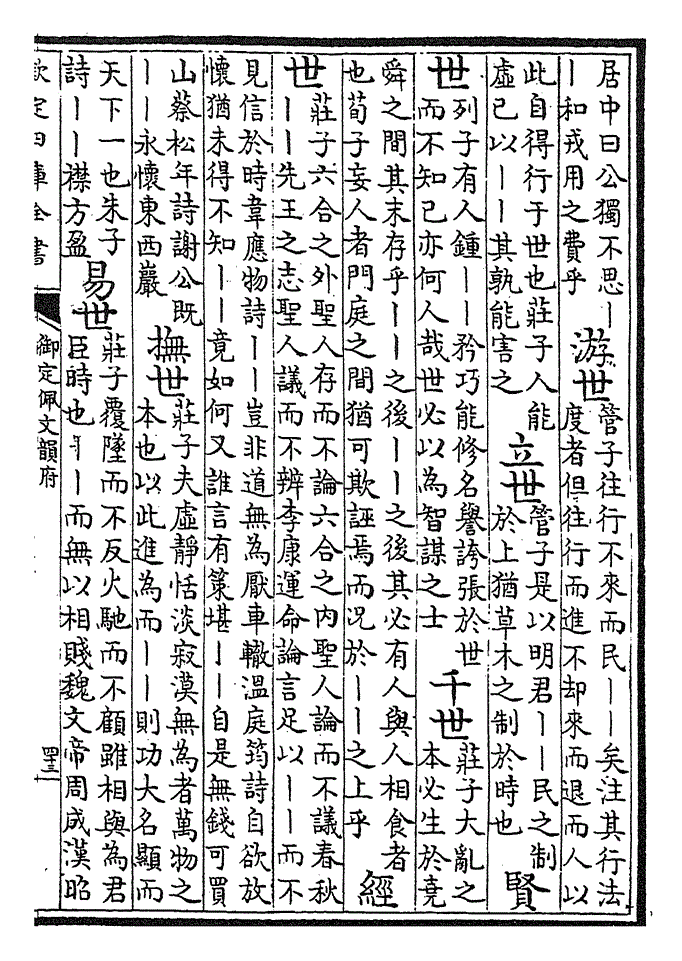 居中曰公獨不思｜
｜和戎用之費乎
游世
管子往行不來而民｜｜矣注其行法
度者但往行而進不却來而退而人以
此自得行于世也莊子人能
虛已以｜｜其孰能害之
立世
管子是以明君｜｜民之制
於上猶草木之制於時也
賢
世
列子有人鍾｜｜矜巧能修名譽誇張於世
而不知已亦何人哉世必以為智謀之士
千世
莊子大亂之
本必生於堯
舜之間其末存乎｜｜之後｜｜之後其必有人與人相食者
也荀子妄人者門庭之間猶可欺誣焉而況於｜｜之上乎
經
世
莊子六合之外聖人存而不論六合之內聖人論而不議春秋
｜｜先王之志聖人議而不辨李康運命論言足以｜｜而不
見信於時韋應物詩｜｜豈非道無為厭車轍溫庭筠詩自欲放
懷猶未得不知｜｜竟如何又誰言有策堪｜｜自是無錢可買
山蔡松年詩謝公既
｜｜永懷東西巖
撫世
莊子夫虛靜恬淡寂漠無為者萬物之
本也以此進為而｜｜則功大名顯而
天下一也朱子
詩｜｜襟方盈
易世
莊子覆墜而不反火馳而不顧雖相與為君
臣時也｜｜而無以相賤魏文帝周成漢昭
欽定四庫全書
御定佩文韻府
四十三